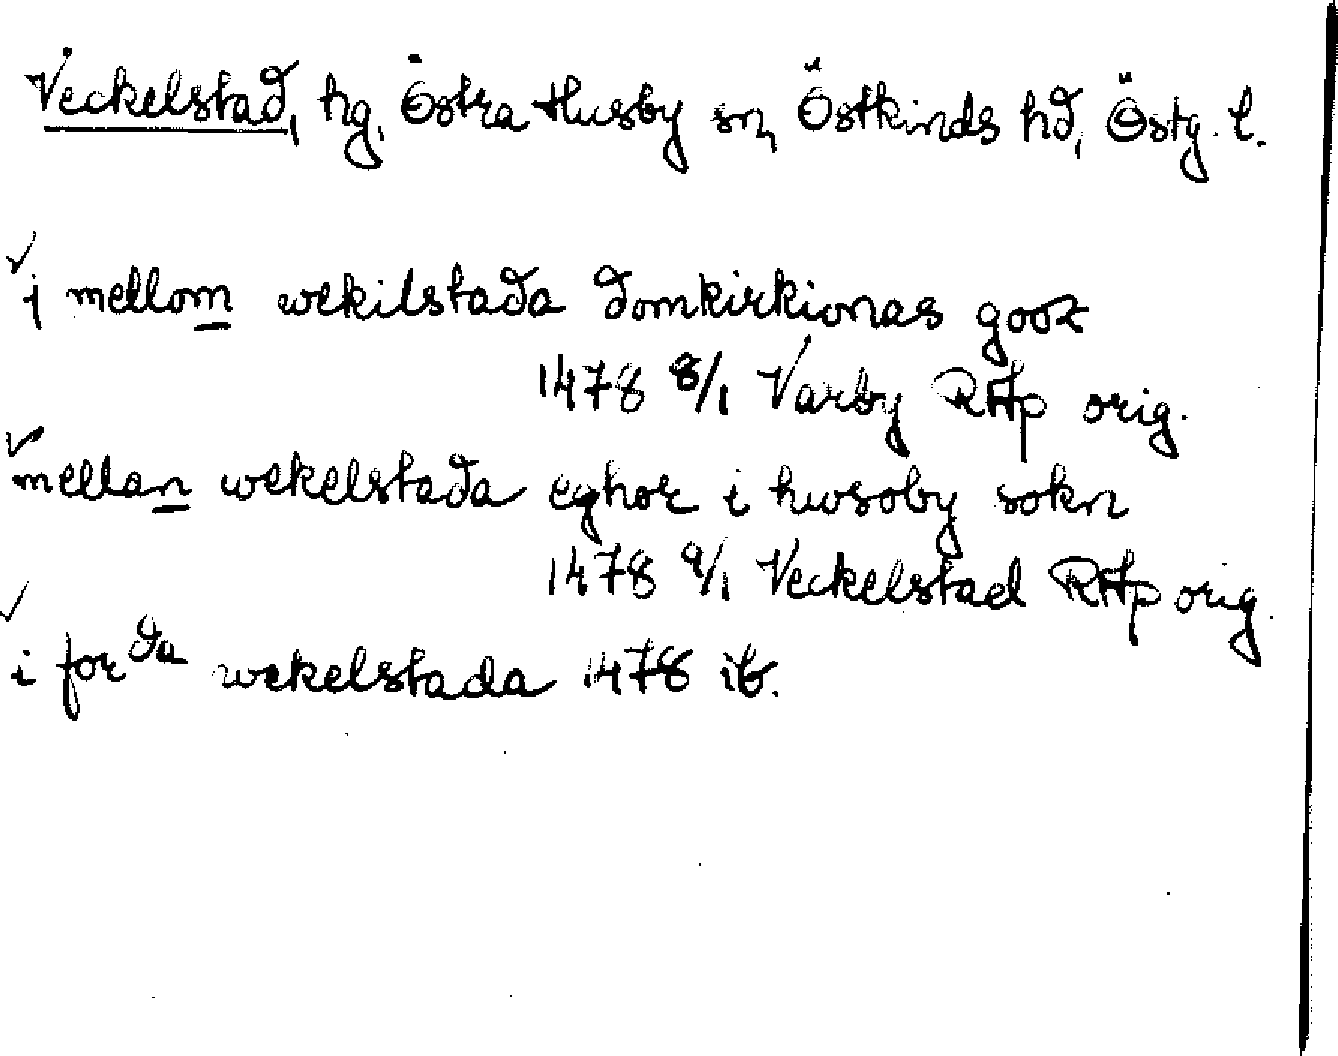 Veckelstad, hg, Östra Husby sn, Östkinds hd, Östg. l.
j mellom wekilstada domkirkionas gooz
1478 8/1 Varby RAp orig.
mellan wekelstada eghor i hwsoby sokn
1478 9/1 Veckelstad RAp orig.
i forda wekelstada 1478 ib.